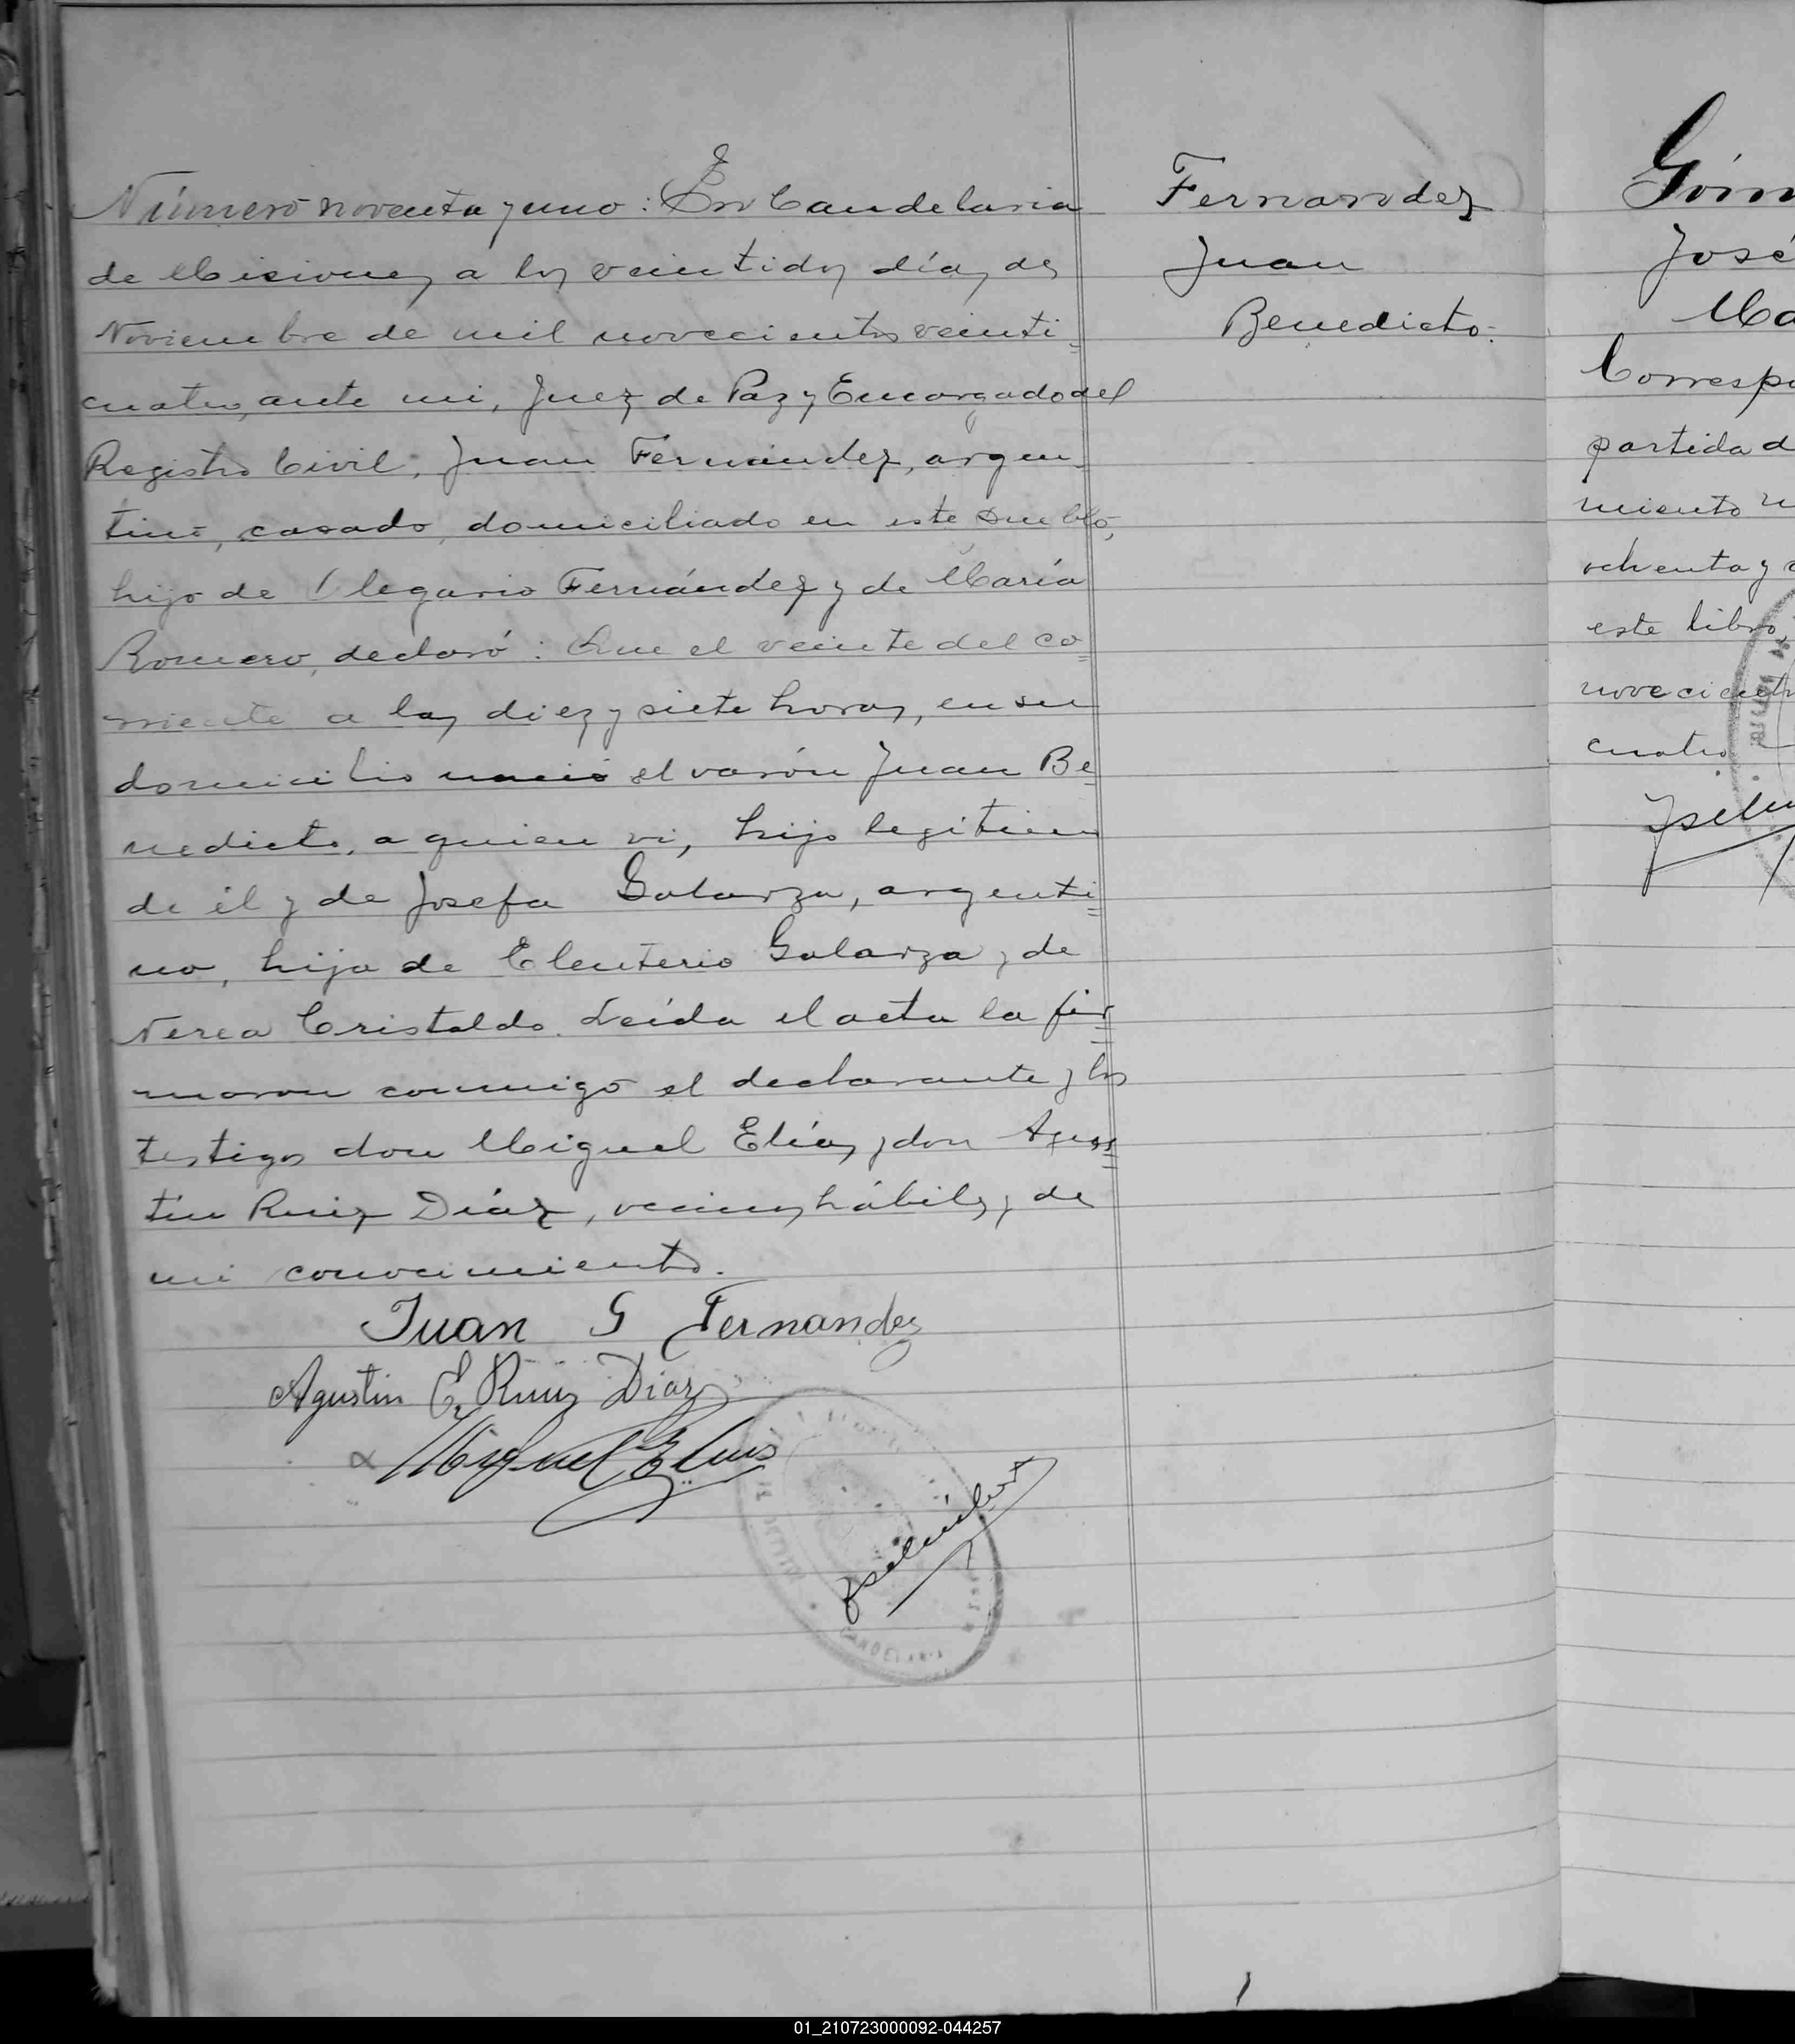 Número noventa y uno: En Candelaria
de Misiones, a los veintidos días de
Noviembre de mil novecientos veinti=
cuatro, ante mi, Juez de Paz y Encargado del
Registro Civil, Juan Fernández, argen=
tino, casado, domiciliado en este pueblo,
hijo de Olegario Fernández y de María
Romero, declaró: Que el veinte del co=
rriente a las diez y siete horas, en su
domicilio nació el varón Juan Be=
nedicto, a quien vi, hijo legítimo
de él y de Josefa Galarza, argenti=
na, hija de Eleuterio Galarza y de
Nerea Cristaldo. Leída el acta la fir=
maron conmigo el declarante y los
testigos don Miguel Elías y don Agus=
tín Ruiz Díaz, vecinos hábiles y de
mi conocimiento.
Juan G Fernandez
Agustin E. Ruiz Diaz
Miguel Elias
Fernandez
Juan
Benedicto.
Góm
José
Ma
Corresp
partida d
miento n
ochenta y
este libro,
novecient
cuatro
01_210723000092-044257